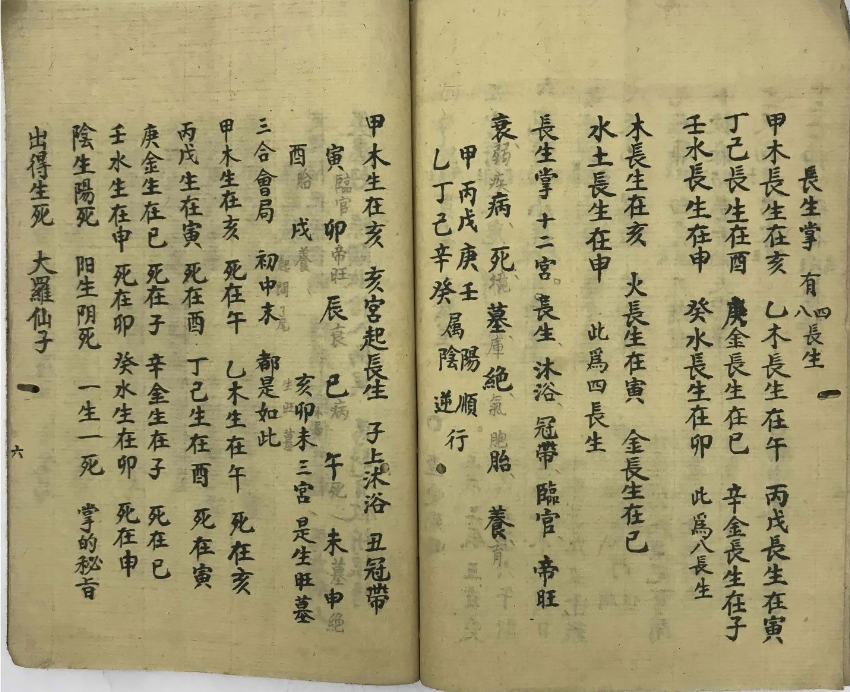 長生掌 有四八長生
甲木長生在亥 乙木長生在午 丙戊長生在寅
丁己長生在酉 庚金長生在巳 辛金長生在子
壬水長生在申 癸水長生在卯 此爲八長生
木長生在亥 火長生在寅 金長生在巳
水土長生在申 此爲四長生
長生掌 十二宮 長生 沐浴 冠帶 臨官 帝旺
衰弱 病疾 死 墓庫 絕氣 胞胎 養育
甲丙戊庚壬 陽順
乙丁己辛癸 属陰逆行
甲木生在亥 亥宮起長生 子上沐浴 丑冠帶
寅臨官 卯帝旺 辰衰 巳病 午死 未墓 申絕
酉胎 戌養 亥卯未三宮 是生旺墓
三合會局 初中末 都是如此 生旺墓
甲木生在亥 死在午 乙木生在午 死在亥
丙戊生在寅 死在酉 丁己生在酉 死在寅
庚金生在巳 死在子 辛金生在子 死在巳
壬水生在申 死在卯 癸水生在卯 死在申
陰生陽死 阳生阴死 一生一死 掌的秘旨
出得生死 大羅仙子
六